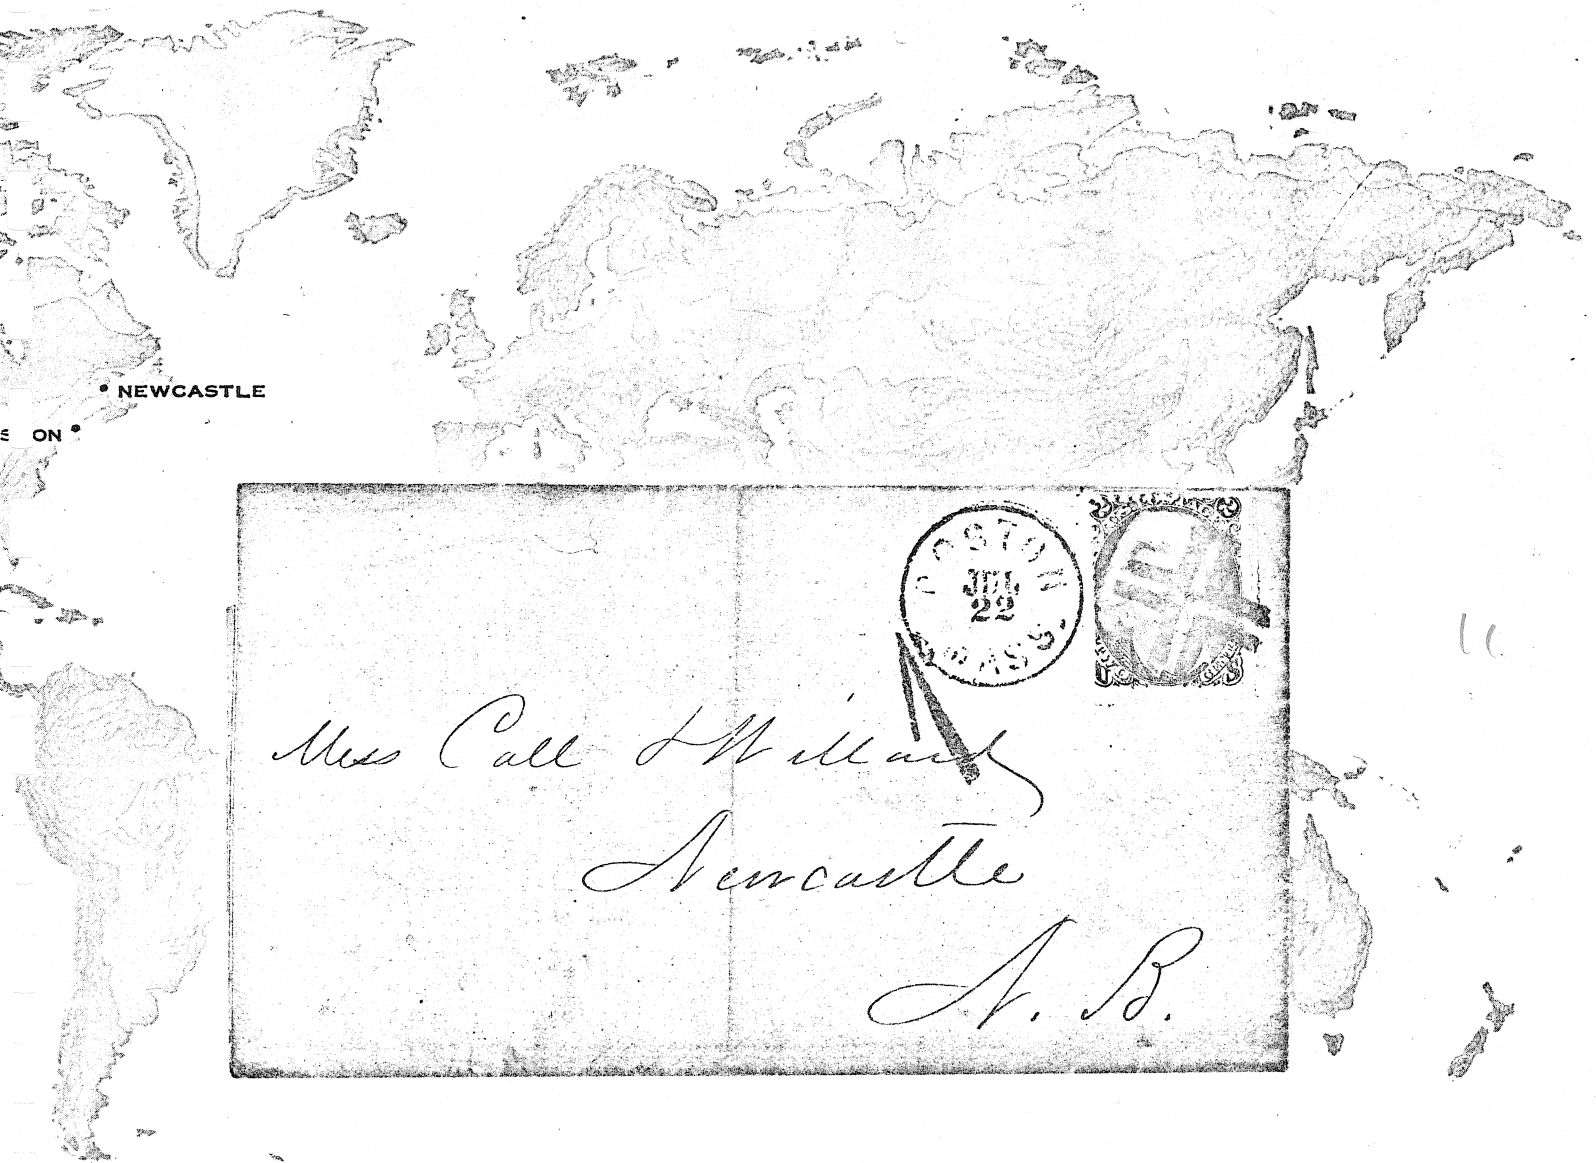 NEWCASTLE
ON
BOSTON
JUL
22
MASS.
2 2
U S
Mess Call & Willard
Newcastle
N. B.